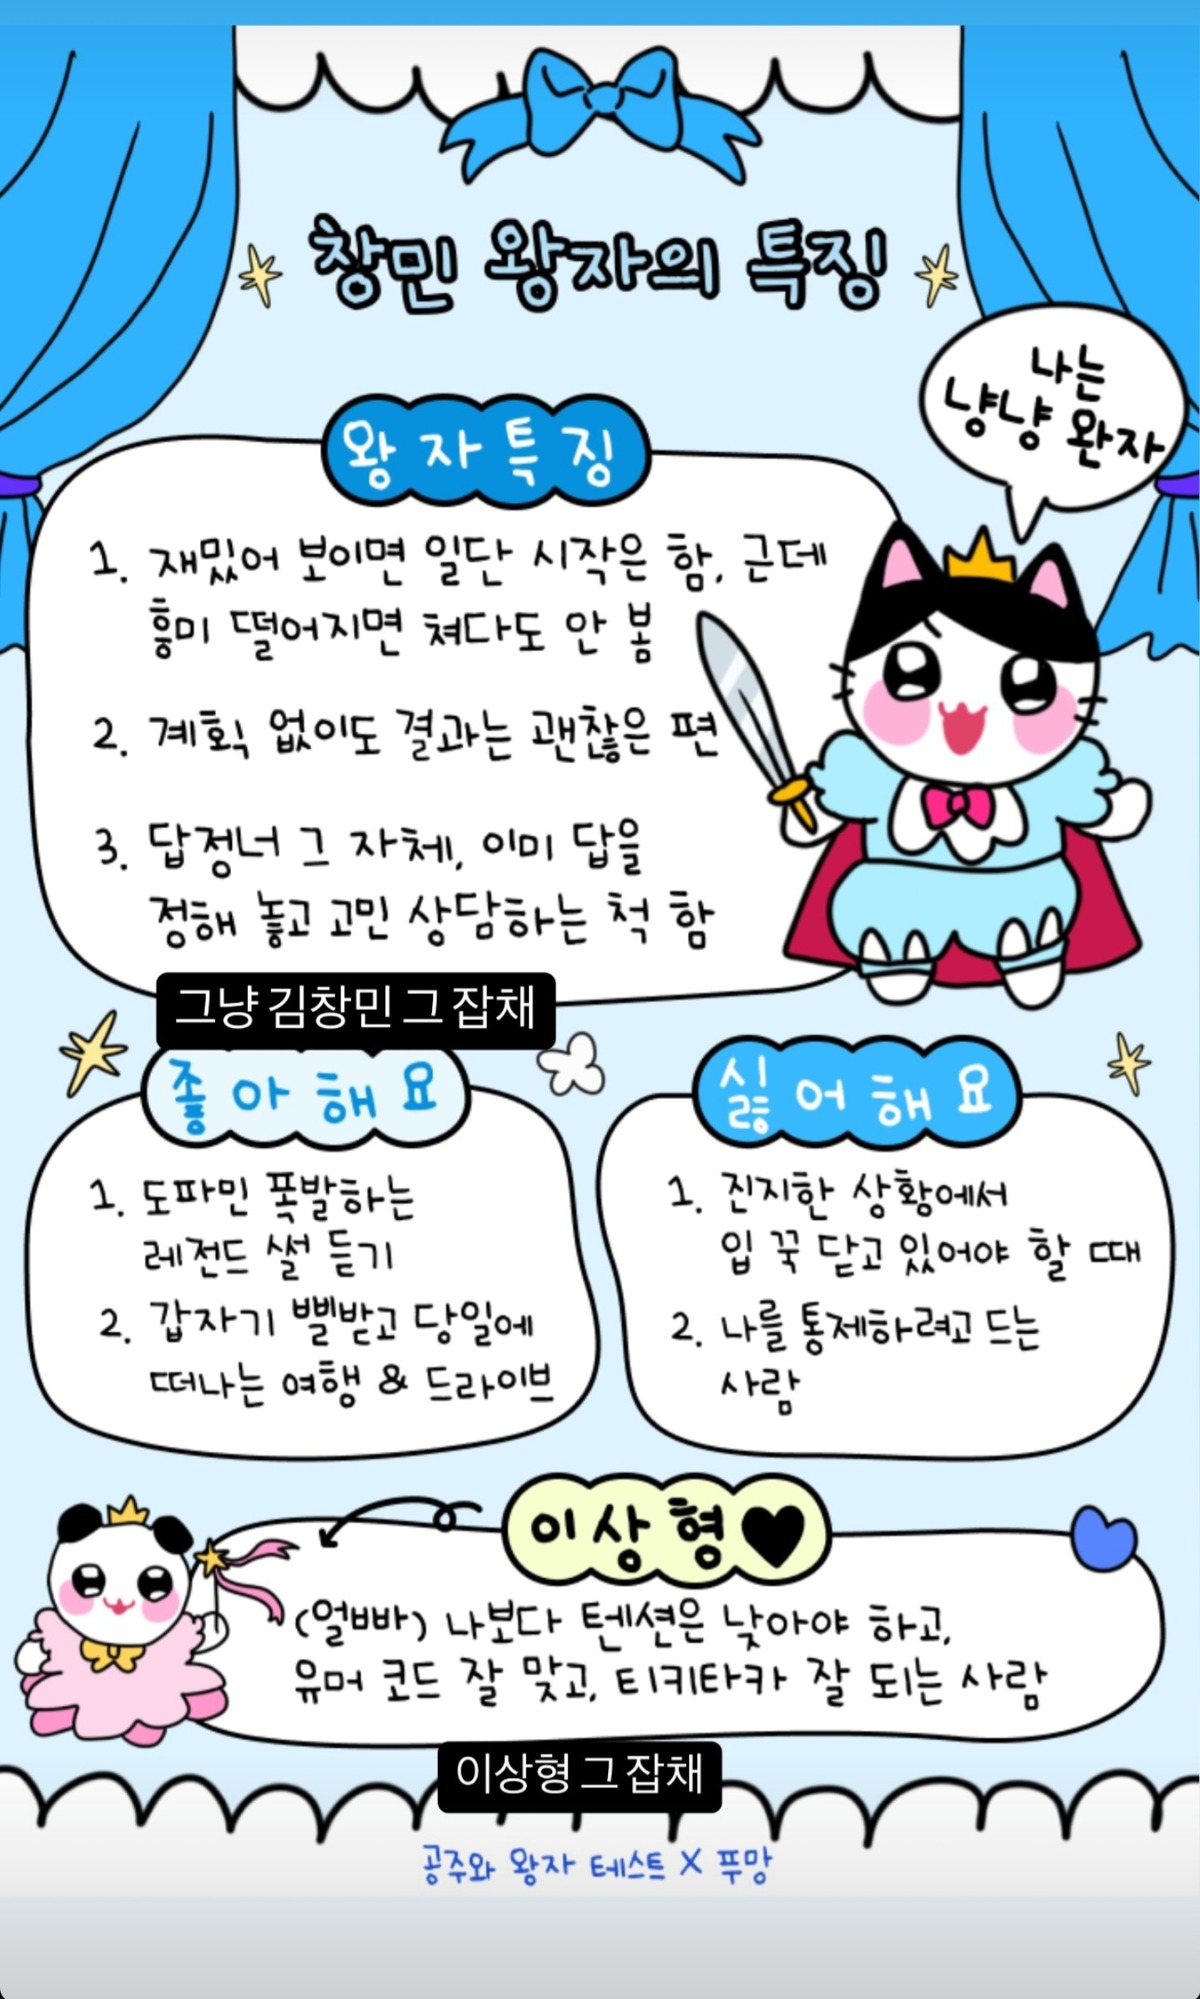 창민 왕자의 특징
나는
냥냥 완자
왕자특징
1. 재밌어 보이면 일단 시작은 함, 근데
흥미 떨어지면 쳐다도 안 봄
2. 계획 없이도 결과는 괜찮은 편
3. 답정너 그 자체, 이미 답을
정해 놓고 고민 상담하는 척 함
그냥 김창민 그 잡채
좋아해요
1. 도파민 폭발하는
레전드 썰 듣기
2. 갑자기 삘받고 당일에
떠나는 여행 & 드라이브
싫어해요
1. 진지한 상황에서
입 꾹 닫고 있어야 할 때
2. 나를 통제하려고 드는
사람
이상형♥
(얼빠) 나보다 텐션은 낮아야 하고,
유머 코드 잘 맞고, 티키타카 잘 되는 사람
이상형 그 잡채
공주와 왕자 테스트 X 푸망